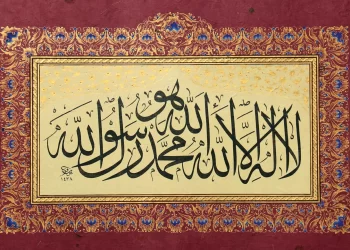 لا إله إلا الله هو محمد رسول الله
١٤٣٨